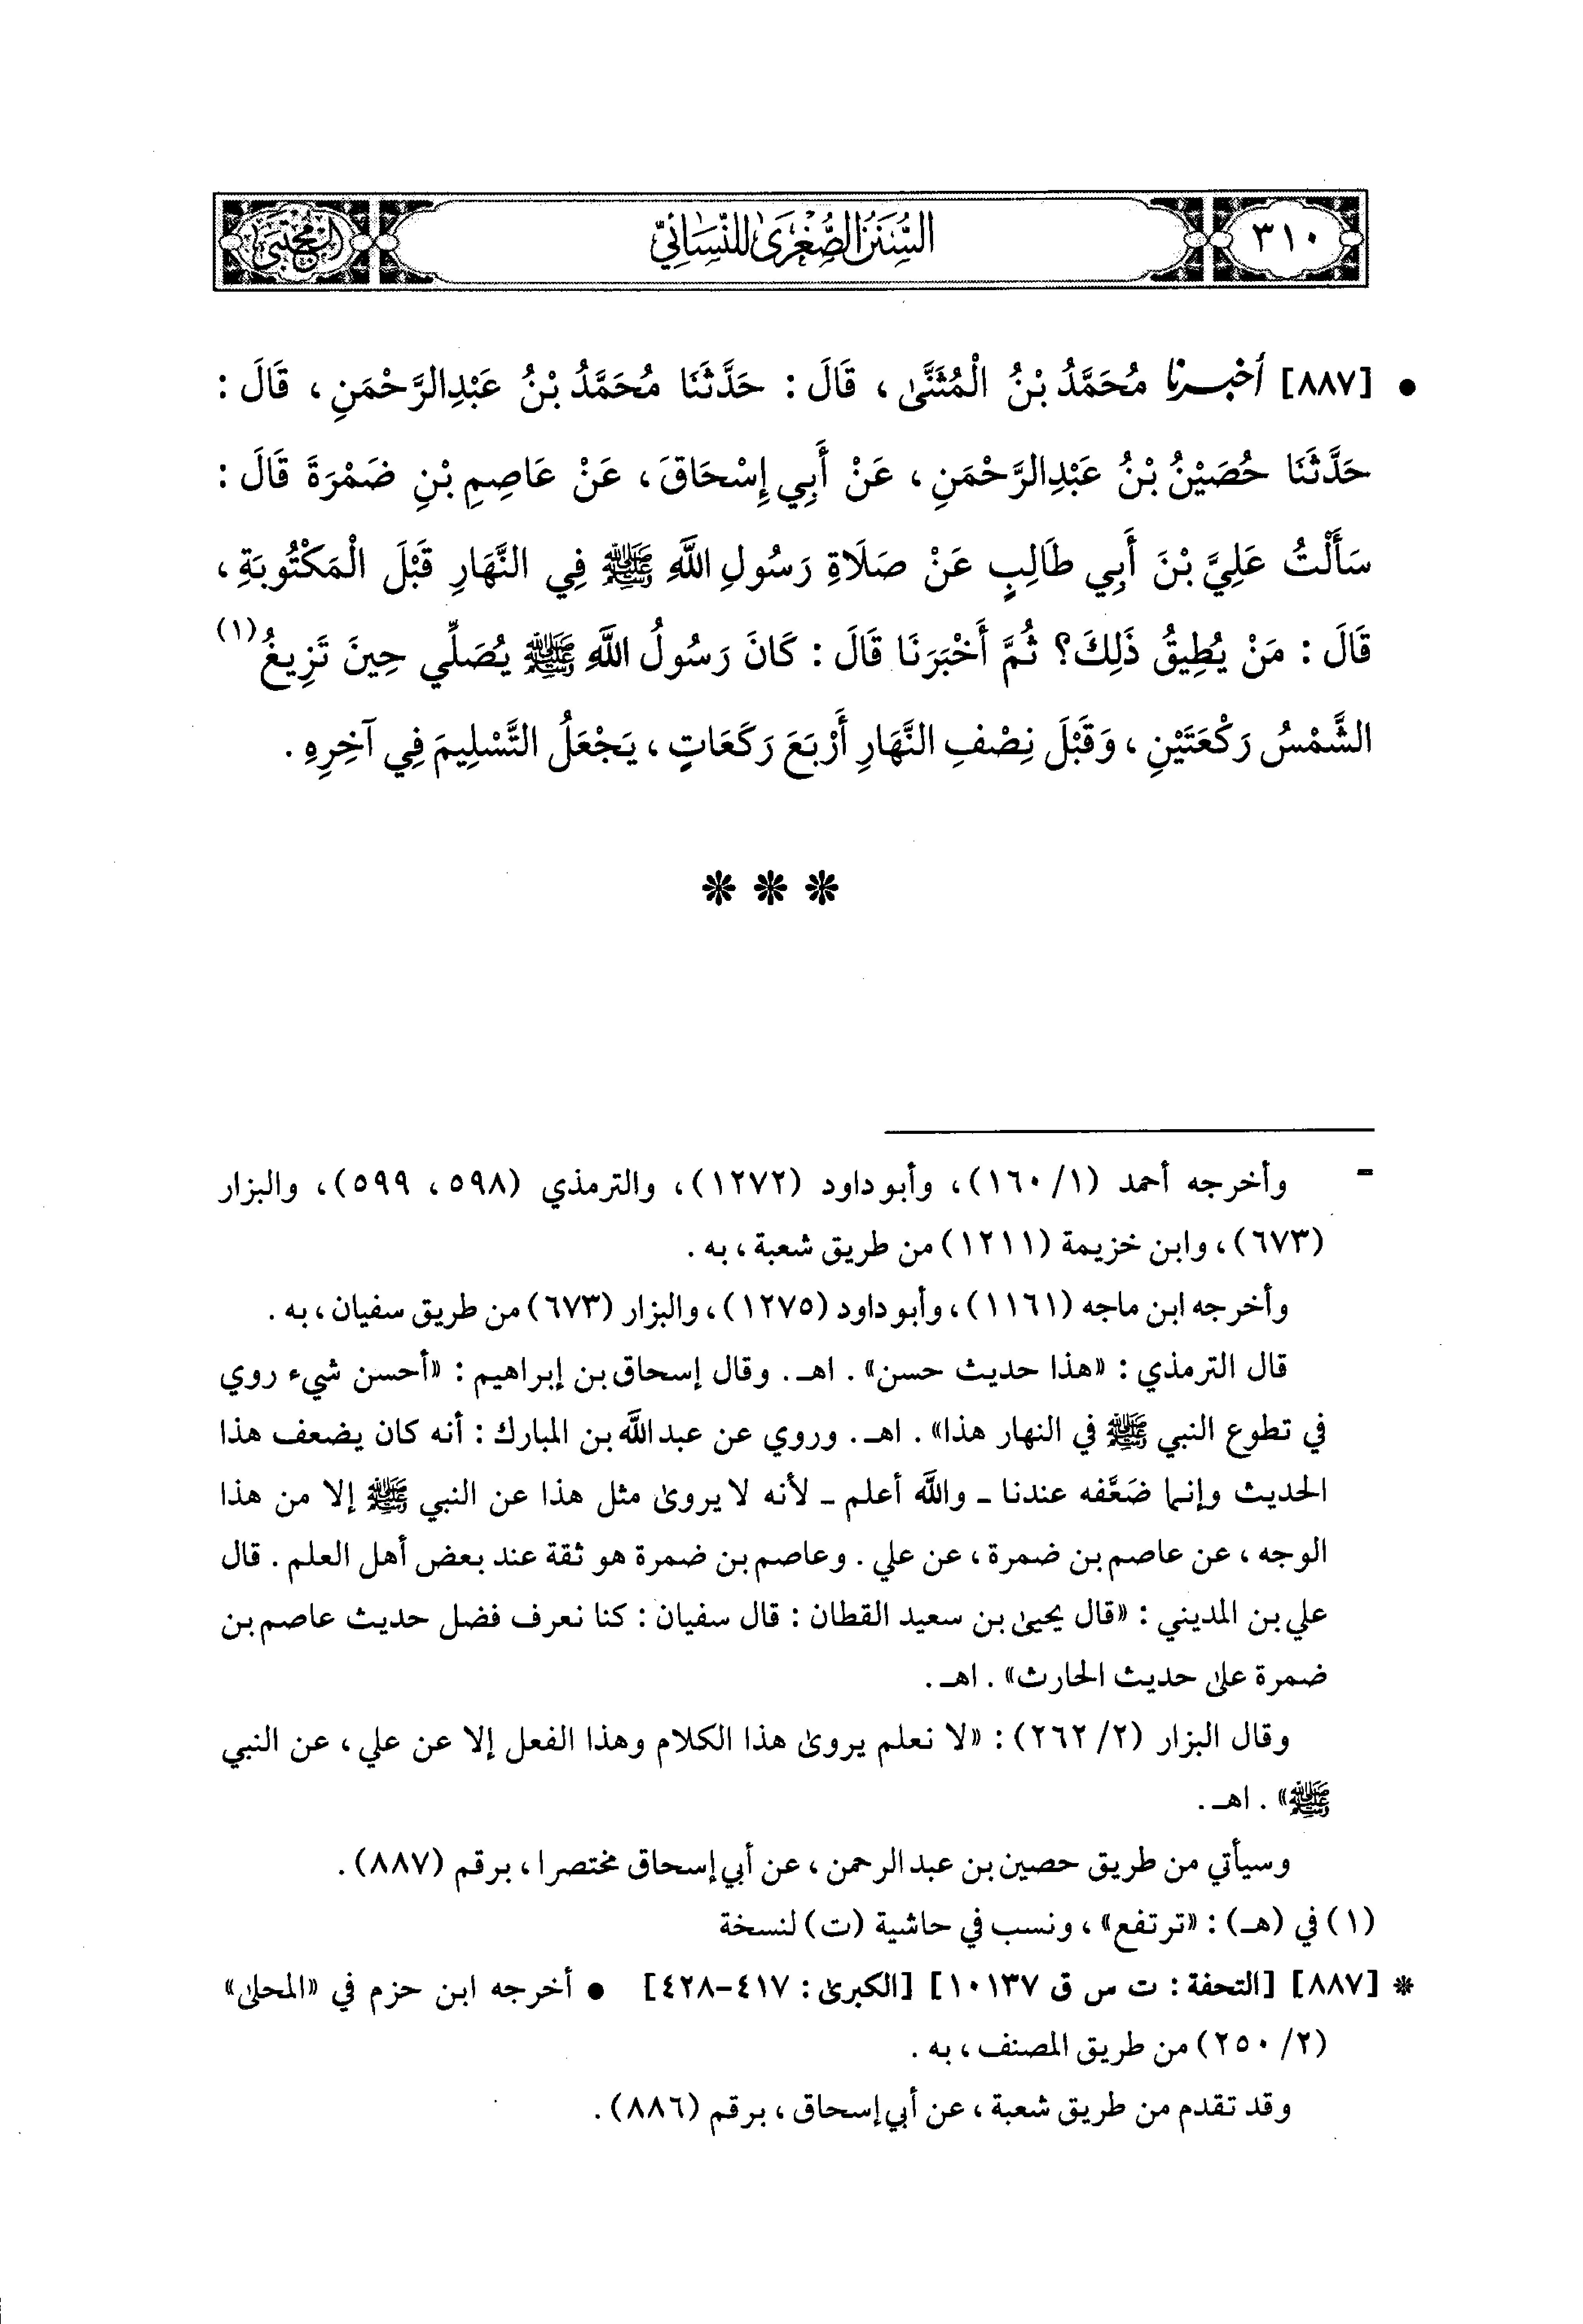 ٣١٠
السُّنَنُ الصُّغْرَىٰ لِلنَّسَائِيِّ
المجتبى
● [٨٨٧] أخبرنا مُحَمَّدُ بْنُ الْمُثَنَّىٰ، قَالَ: حَدَّثَنَا مُحَمَّدُ بْنُ عَبْدِالرَّحْمَنِ، قَالَ:
حَدَّثَنَا حُصَيْنُ بْنُ عَبْدِالرَّحْمَنِ، عَنْ أَبِي إِسْحَاقَ، عَنْ عَاصِمِ بْنِ ضَمْرَةَ قَالَ:
سَأَلْتُ عَلِيَّ بْنَ أَبِي طَالِبٍ عَنْ صَلَاةِ رَسُولِ اللَّهِ ﷺ فِي النَّهَارِ قَبْلَ الْمَكْتُوبَةِ،
قَالَ: مَنْ يُطِيقُ ذَلِكَ؟ ثُمَّ أَخْبَرَنَا قَالَ: كَانَ رَسُولُ اللَّهِ ﷺ يُصَلِّي حِينَ تَزِيغُ(١)
الشَّمْسُ رَكْعَتَيْنِ، وَقَبْلَ نِصْفِ النَّهَارِ أَرْبَعَ رَكَعَاتٍ، يَجْعَلُ التَّسْلِيمَ فِي آخِرِهِ.
* * *
= وأخرجه أحمد (١/ ١٦٠)، وأبو داود (١٢٧٢)، والترمذي (٥٩٨، ٥٩٩)، والبزار
(٦٧٣)، وابن خزيمة (١٢١١) من طريق شعبة، به.
وأخرجه ابن ماجه (١١٦١)، وأبو داود (١٢٧٥)، والبزار (٦٧٣) من طريق سفيان، به.
قال الترمذي: «هذا حديث حسن». اهـ. وقال إسحاق بن إبراهيم: «أحسن شيء روي
في تطوع النبي ﷺ في النهار هذا». اهـ. وروي عن عبدالله بن المبارك: أنه كان يضعف هذا
الحديث وإنما ضَعَّفه عندنا - والله أعلم - لأنه لا يروىٰ مثل هذا عن النبي ﷺ إلا من هذا
الوجه، عن عاصم بن ضمرة، عن علي. وعاصم بن ضمرة هو ثقة عند بعض أهل العلم. قال
علي بن المديني: «قال يحيىٰ بن سعيد القطان: قال سفيان: كنا نعرف فضل حديث عاصم بن
ضمرة علىٰ حديث الحارث». اهـ.
وقال البزار (٢/ ٢٦٢): «لا نعلم يروىٰ هذا الكلام وهذا الفعل إلا عن علي، عن النبي
ﷺ». اهـ.
وسيأتي من طريق حصين بن عبد الرحمن، عن أبي إسحاق مختصرا، برقم (٨٨٧).
(١) في (هـ): «ترتفع»، ونسب في حاشية (ت) لنسخة
* [٨٨٧] [التحفة: ت س ق ١٠١٣٧] [الكبرىٰ: ٤١٧-٤٢٨] ● أخرجه ابن حزم في «المحلىٰ»
(٢/ ٢٥٠) من طريق المصنف، به.
وقد تقدم من طريق شعبة، عن أبي إسحاق، برقم (٨٨٦).